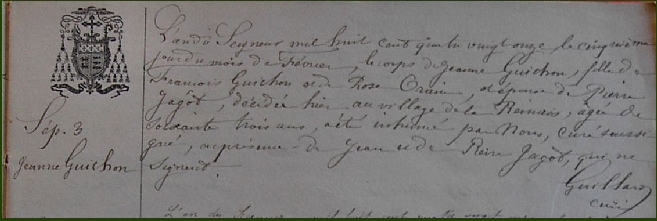 L'an du Seigneur mil huit cent quatre vingt onze le cinquième
jour du mois de Février, le corps de Jeanne Guichon, fille de
François Guichon et de Rose Orain, et épouse de Pierre
Jagôt, décédée hier au village de la Remais, agée de
soixante trois ans, a été inhumé par Nous, curé soussi
gné, en présence de Jean et de Reine Jagôt, qui ne
signent.
Guillard
curé
Sép. 3
Jeanne Guichon
L'an du Seigneur